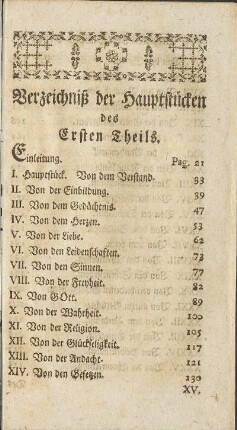 Verzeichniß der Hauptstücken
des
Ersten Theils.
Einleitung. Pag. 21
I. Hauptstück. Von dem Verstand. 33
II. Von der Einbildung. 39
III. Von dem Gedächtnis. 47
IV. Von dem Herzen. 53
V. Von der Liebe. 62
VI. Von den Leidenschaften. 73
VII. Von den Sinnen. 77
VIII. Von der Freyheit. 82
IX. Von GOtt. 89
X. Von der Wahrheit. 100
XI. Von der Religion. 105
XII. Von der Glückseligkeit. 117
XIII. Von der Andacht. 121
XIV. Von den Gesetzen. 130
XV.